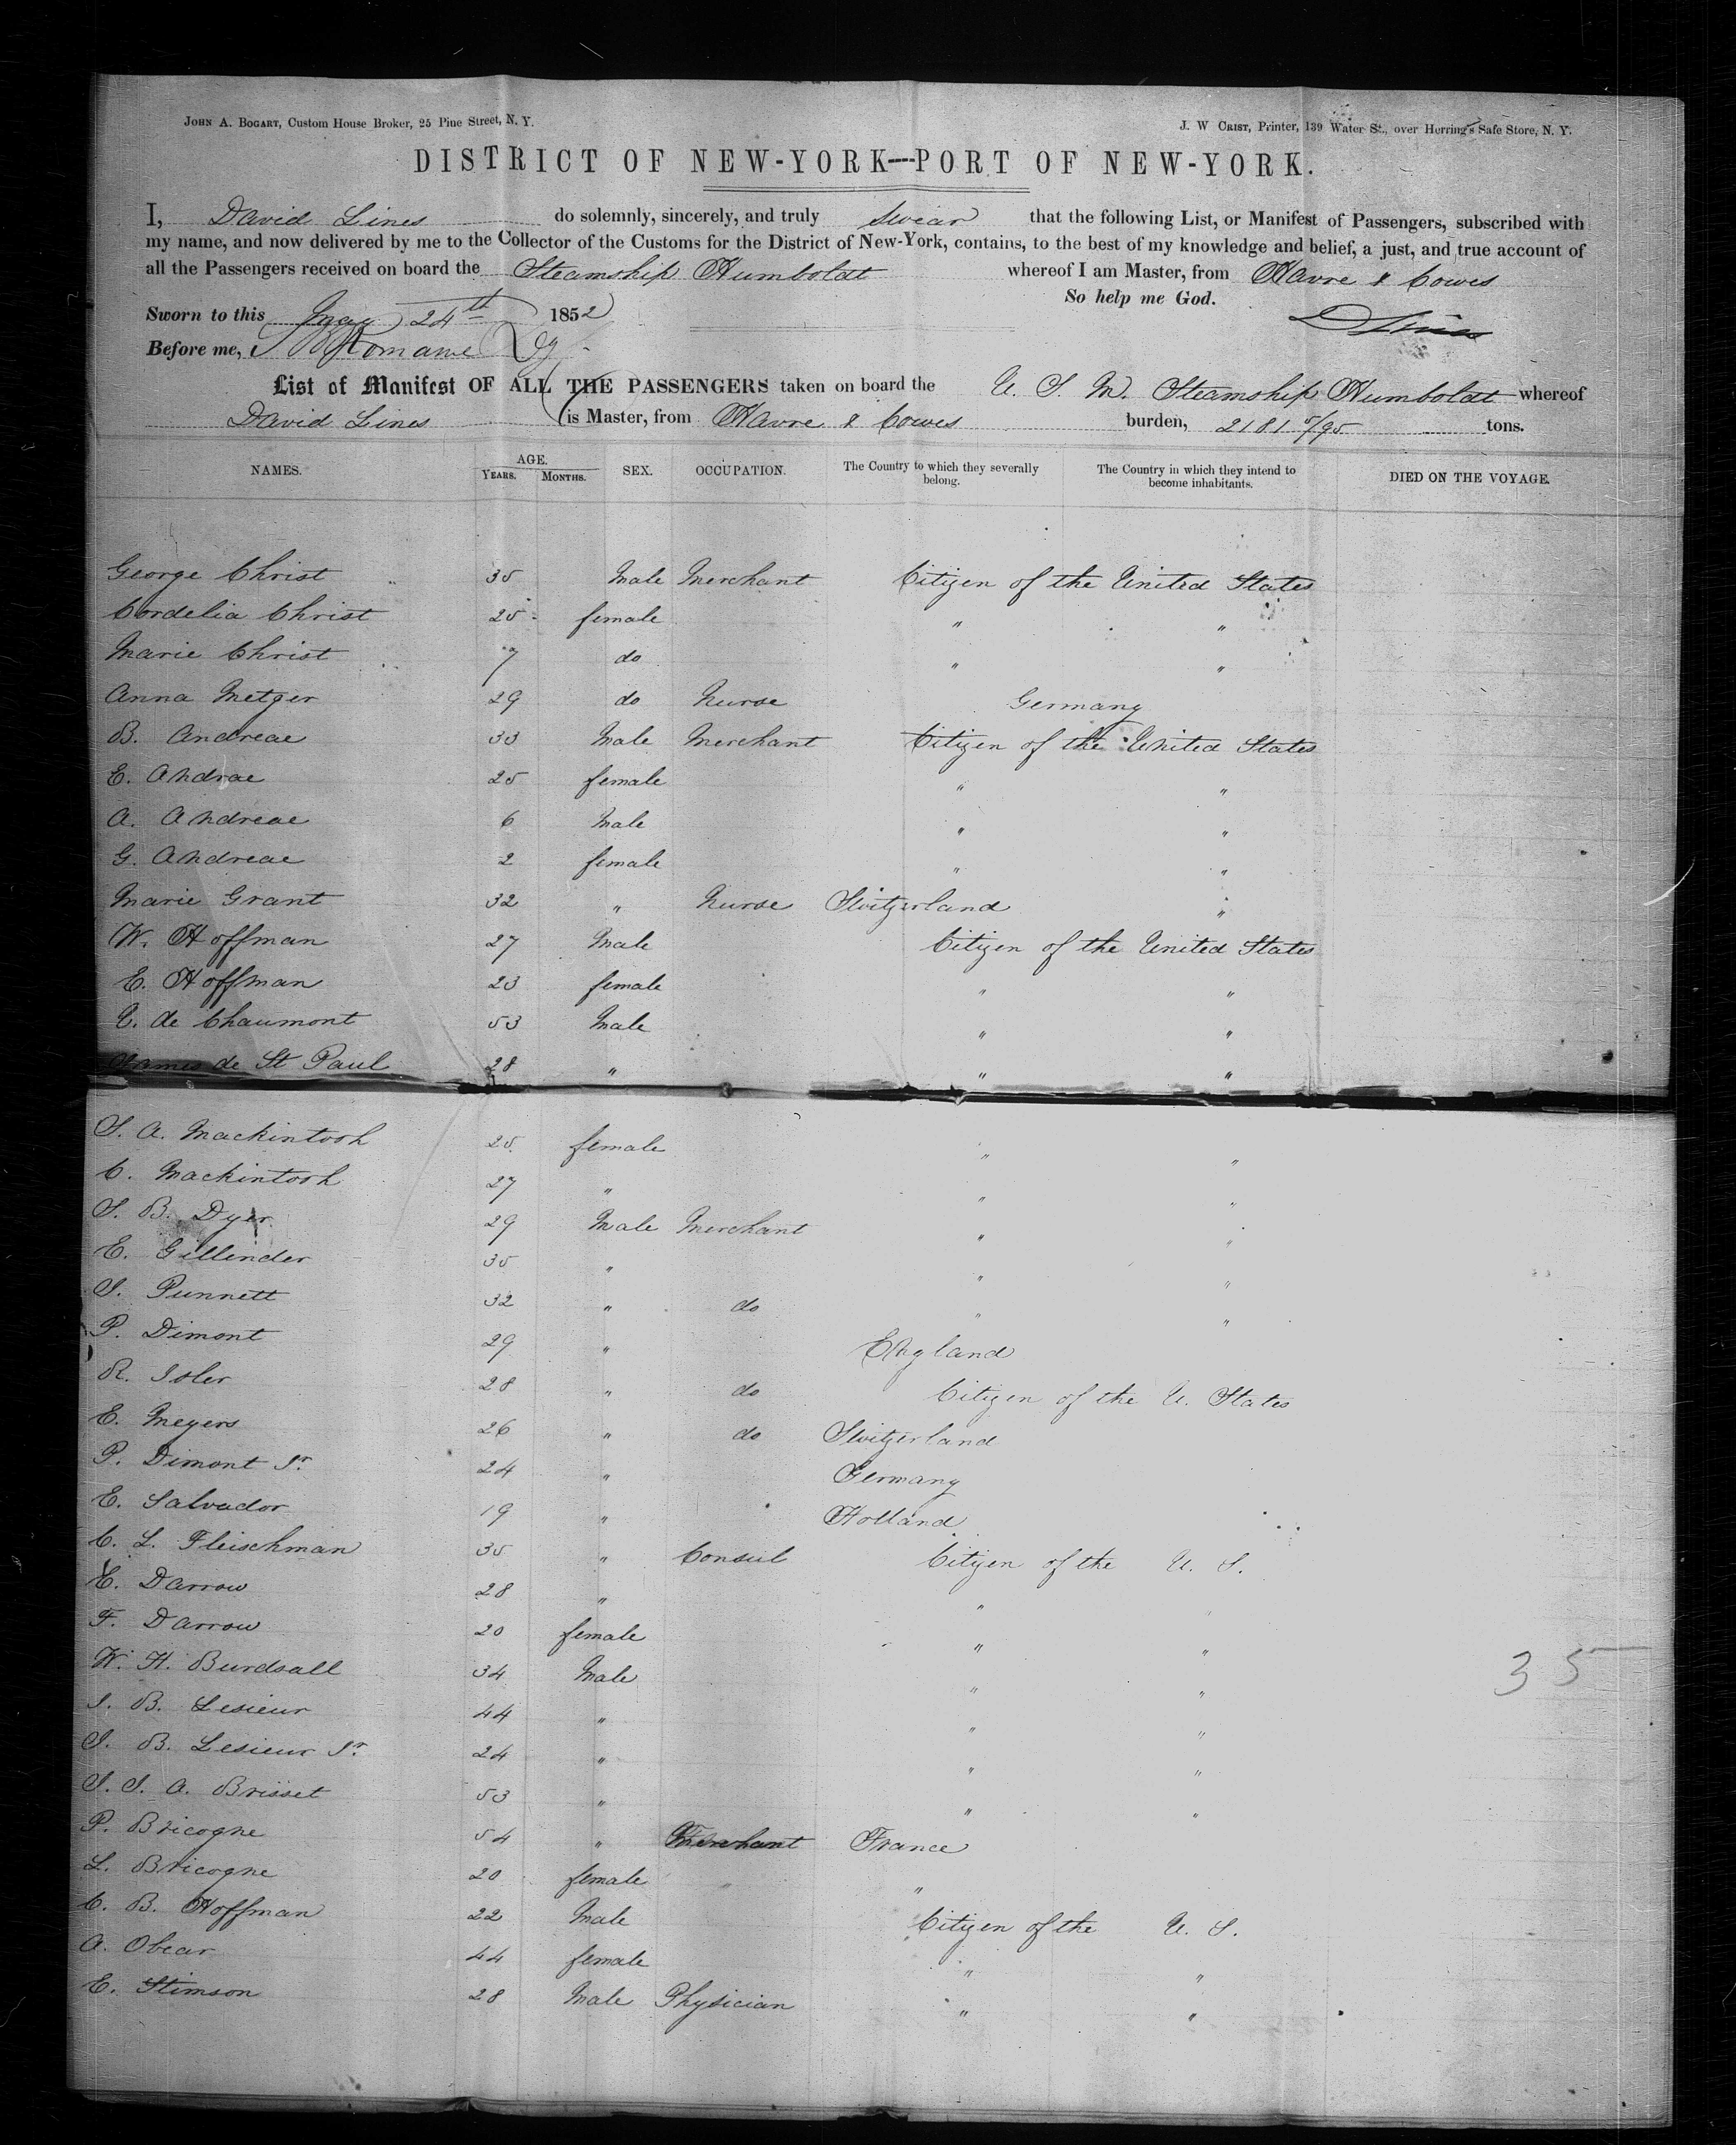 JOHN A. BOGART, Custom House Broker, 25 Pine Street, N. Y. J. W CRIST, Printer, 139 Water St., over Herring's Safe Store, N. Y.
DISTRICT OF NEW-YORK—PORT OF NEW-YORK.
I, David Lines do solemnly, sincerely, and truly swear that the following List, or Manifest of Passengers, subscribed with
my name, and now delivered by me to the Collector of the Customs for the District of New-York, contains, to the best of my knowledge and belief, a just, and true account of
all the Passengers received on board the Steamship Humboldt whereof I am Master, from Havre & Cowes
So help me God.
Sworn to this May 24th 1852 D Lines
Before me,
List of Manifest OF ALL THE PASSENGERS taken on board the U. S. M. Steamship Humboldt whereof
David Lines is Master, from Havre & Cowes burden, 2181 5/95 tons.
NAMES. AGE. YEARS. MONTHS. SEX. OCCUPATION. The Country to which they severally belong. The Country in which they intend to become inhabitants. DIED ON THE VOYAGE.
George Christ 35 Male Merchant Citizen of the United States
Cordelia Christ 25 female " "
Marie Christ 7 do " "
Anna Metger 29 do Nurse Germany
B. Andreae 33 Male Merchant Citizen of the United States
E. Andrae 25 female " "
A. Andreae 6 Male " "
G. Andreae 2 female " "
Marie Grant 32 " Nurse Switzerland "
W. Hoffman 27 Male Citizen of the United States
E. Hoffman 23 female " "
E. de Chaumont 53 Male " "
de St Paul 28 " " "
S. A. Mackintosh 25 female " "
C. Mackintosh 27 " " "
S. B. Dyer 29 Male Merchant " "
E. Gillender 35 " " "
S. Punnett 32 " do " "
P. Dimont 29 " England
R. Isler 28 " do Citizen of the U. States
E. Meyers 26 " do Switzerland
P. Dimont Jr 24 " Germany
E. Salvador 19 " Holland
C. L. Fleischman 35 " Consul Citizen of the U. S.
E. Darrow 28 " " "
F. Darrow 20 female " "
W. H. Burdsall 34 Male " "
J. B. Lesieur 44 " " "
J. B. Lesieur Jr 24 " " "
J. J. A. Brisset 53 " " "
P. Bricogne 54 " Merchant France
L. Bricogne 20 female "
C. B. Hoffman 22 Male Citizen of the U. S.
A. Obear 44 female " "
E. Stimson 28 Male Physician " "
35